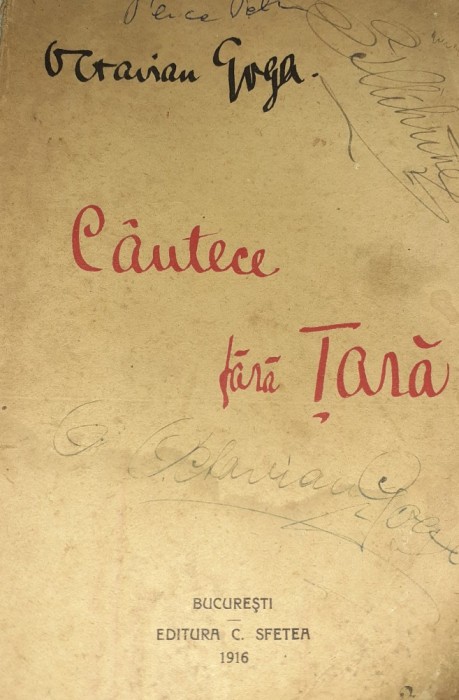 Octavian Goga.
Cântece
fără Țară
Octavian Goga
BUCUREȘTI
EDITURA C. SFETEA
1916